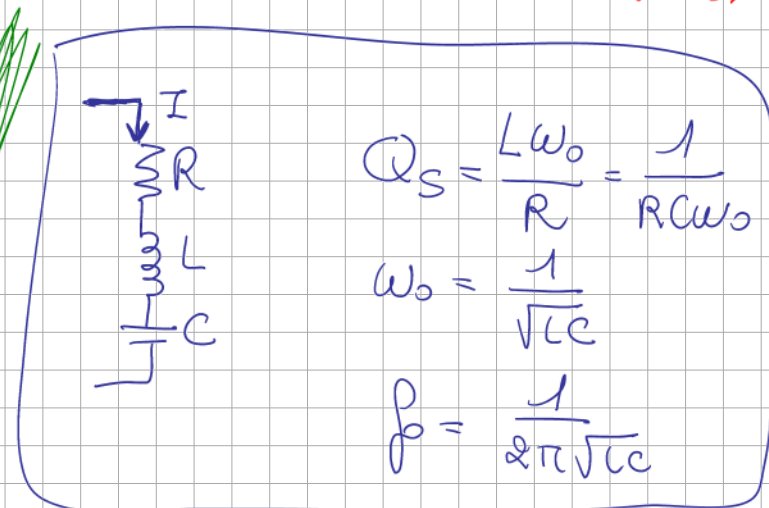 I
R
L
C
Q_S = Lω₀/R = 1/RCω₀
ω₀ = 1/√LC
f₀ = 1/2π√LC